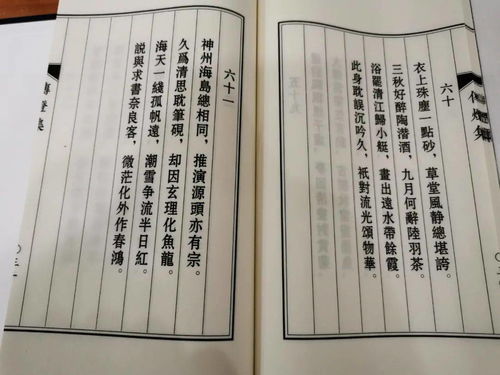 六十
衣上珠塵一點砂，草堂風静總堪誇。
三秋好醉陶潜酒，九月何辭陸羽茶。
浴罷清江歸小艇，畫出遠水帶餘霞。
此身耽誤沉吟久，祇對流光頌物華。
六十一
神州海島總相同，推演源頭亦有宗。
久爲清思耽筆硯，却因玄理化魚龍。
海天一綫孤帆遠，潮雪争流半日紅。
説與求書奈良客，微茫化外作春鴻。
傳燈集